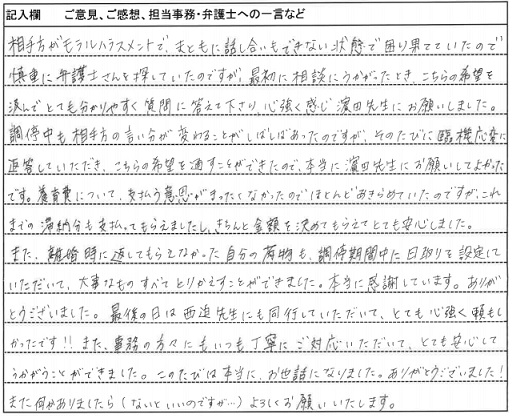 記入欄　ご意見、ご感想、担当事務・弁護士への一言など
相手方がモラルハラスメントで、まともに話し合いもできない状態で困り果てていたので
慎重に弁護士さんを探していたのですが、最初に相談にうかがったとき、こちらの希望を
汲んでとても分かりやすく質問に答えて下さり、心強く感じ濵田先生にお願いしました。
調停中も相手方の言い分が変わることがしばしばあったのですが、そのたびに臨機応変に
返答していただき、こちらの希望を通すことができたので、本当に濵田先生にお願いしてよかった
です。養育費について、支払う意思がまったくなかったのでほとんどあきらめていたのですが、これ
までの滞納分も支払ってもらえましたし、きちんと金額を決めてもらえてとても安心しました。
また、離婚時に返してもらえなかった自分の荷物も、調停期間中に日取りを設定して
いただいて、大事なものすべてとりかえすことができました。本当に感謝しています。ありが
とうございました。最後の日は西迫先生にも同行していただいて、とても心強く頼もし
かったです!!また、事務の方々にもいつも丁寧にご対応いただいて、とても安心して
うかがうことができました。このたびは本当に、お世話になりました。ありがとうございました!
また何かありましたら(ないといいのですが…)よろしくお願いいたします。